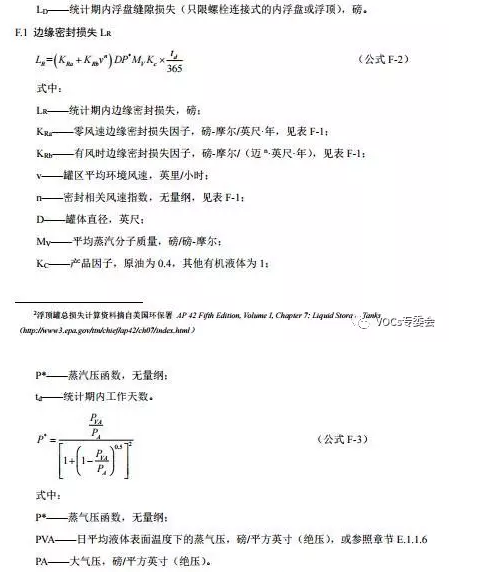 LD——统计期内浮盘缝隙损失（只限螺栓连接式的内浮盘或浮顶），磅。
F.1 边缘密封损失 LR
LR=(KRa+KRbv^n)DP*MVKC×td/365 （公式 F-2）
式中：
LR——统计期内边缘密封损失，磅；
KRa——零风速边缘密封损失因子，磅-摩尔/英尺·年，见表 F-1；
KRb——有风时边缘密封损失因子，磅-摩尔/（迈^n·英尺·年），见表 F-1；
v——罐区平均环境风速，英里/小时；
n——密封相关风速指数，无量纲，见表 F-1；
D——罐体直径，英尺；
MV——平均蒸汽分子质量，磅/磅-摩尔；
KC——产品因子，原油为 0.4，其他有机液体为 1；
2浮顶罐总损失计算资料摘自美国环保署 AP 42 Fifth Edition, Volume I, Chapter 7: Liquid Stora Tanks
(http://www3.epa.gov/ttn/chief/ap42/ch07/index.html)
VOCs专委会
P*——蒸汽压函数，无量纲；
td——统计期内工作天数。
P*=(PVA/PA)/[1+(1-PVA/PA)^0.5]^2 （公式 F-3）
式中：
P*——蒸气压函数，无量纲；
PVA——日平均液体表面温度下的蒸气压，磅/平方英寸（绝压），或参照章节 E.1.1.6
PA——大气压，磅/平方英寸（绝压）。